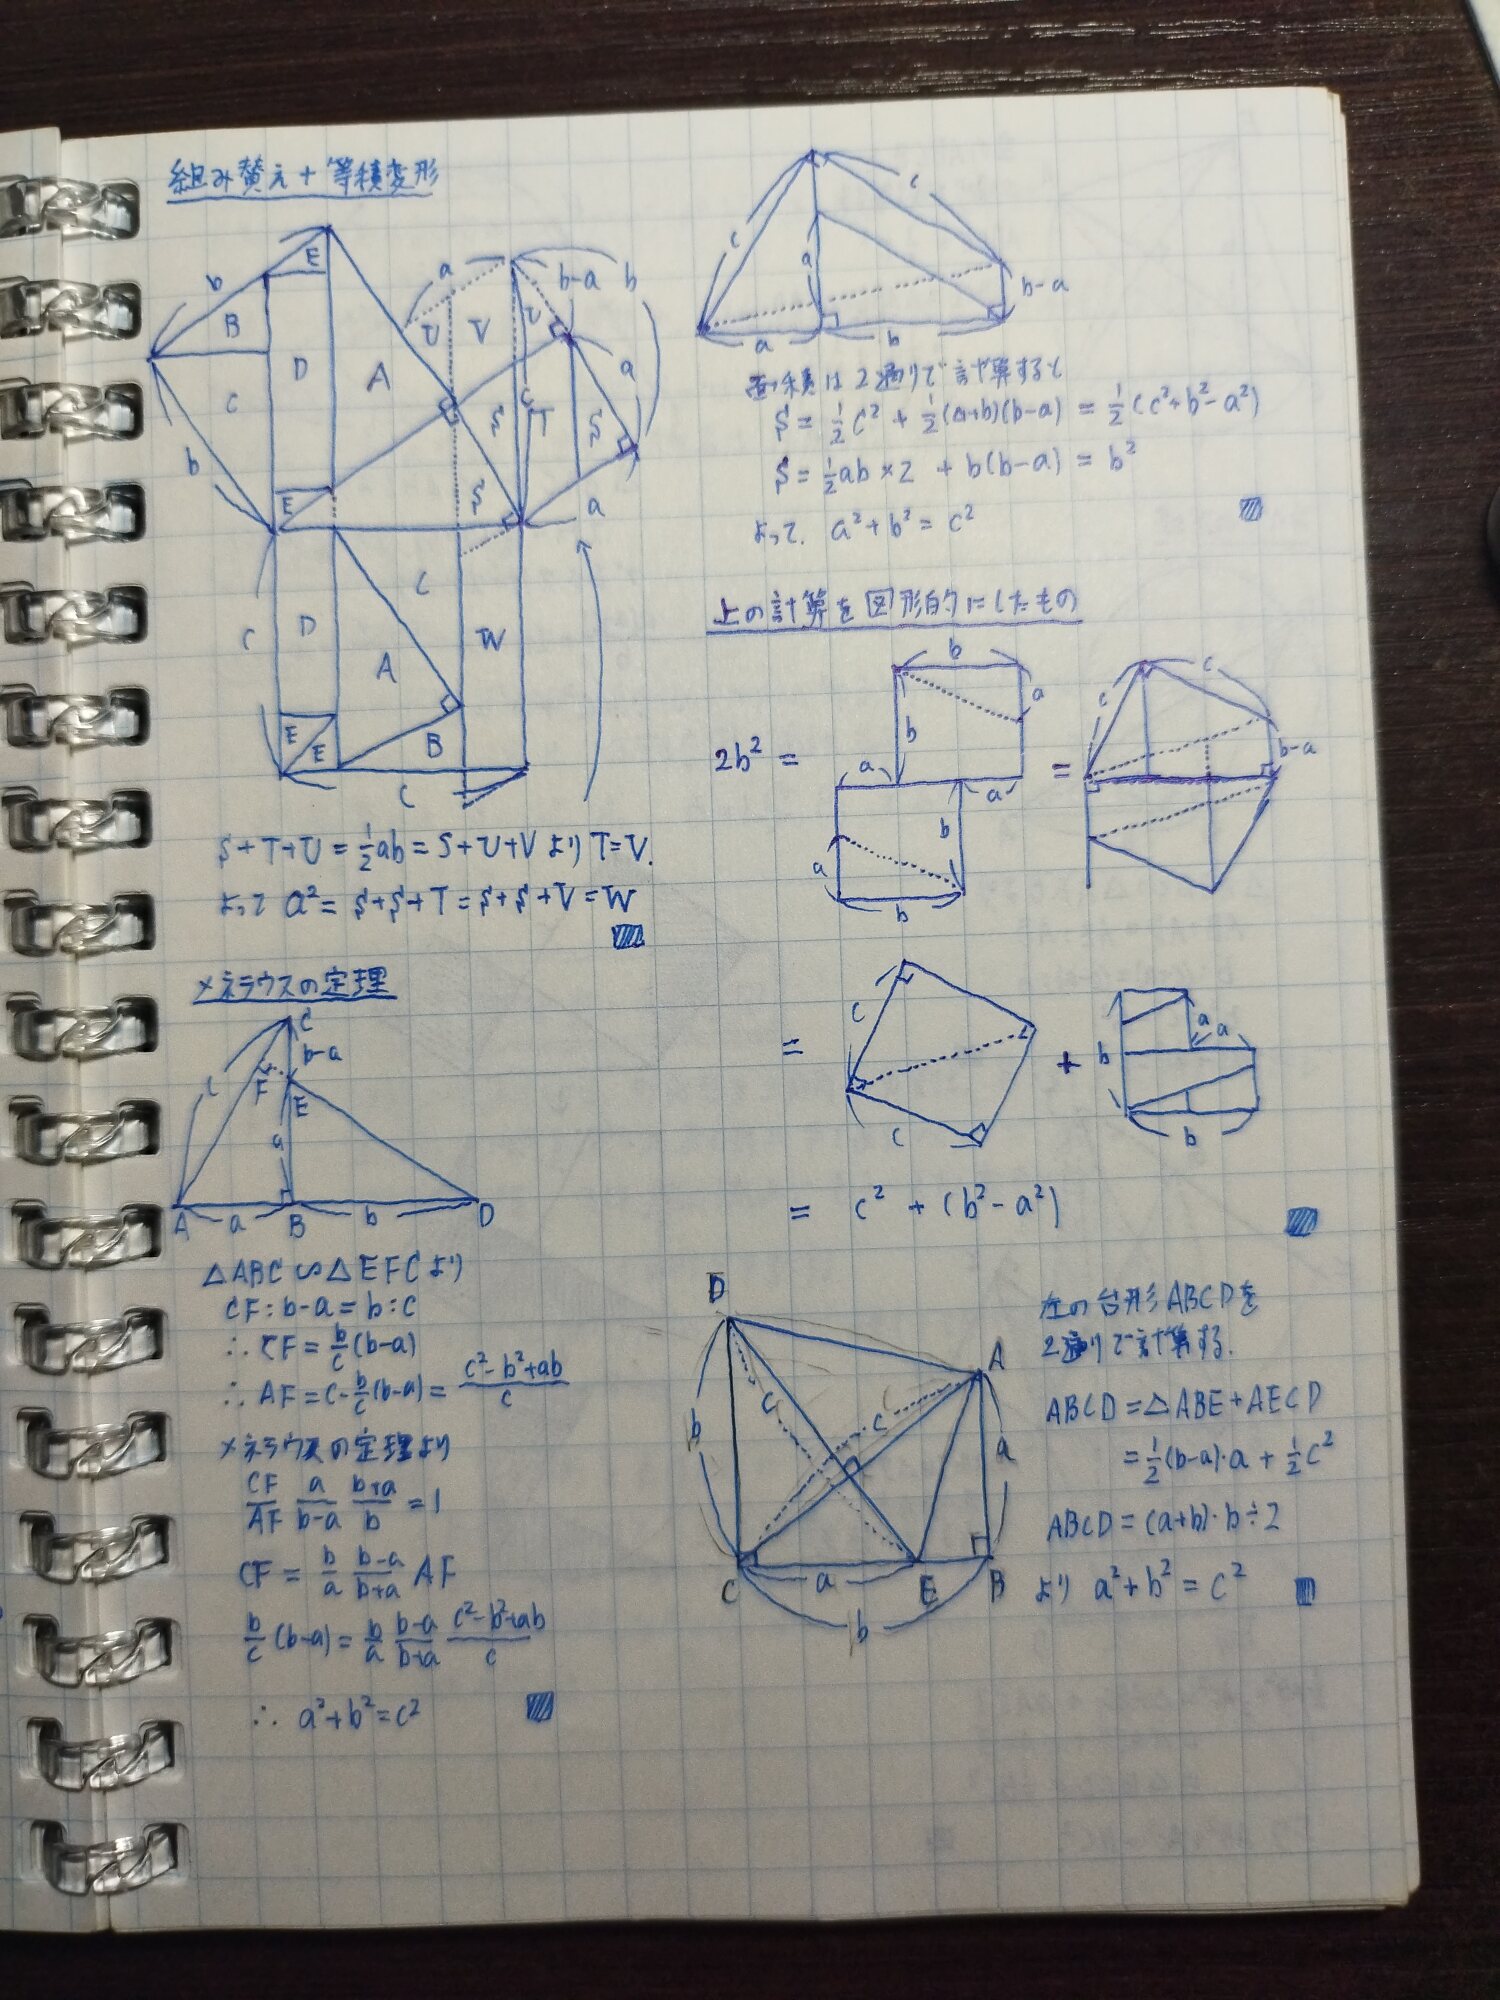 組み替え+等積変形
E
b
B
D
A
C
b
E
a
b-a
b
U
V
U
c
a
S
T
S
S
a
C
c
D
A
W
E
E
B
c
S+T+U=½ab=S+U+V より T=V.
よって a²=S+S+T=S+S+V=W
メネラウスの定理
C
b-a
c
F
E
a
A
a
B
b
D
△ABC∽△EFCより
CF:b-a=b:c
∴ CF=b/c(b-a)
∴ AF=c-b/c(b-a)=(c²-b²+ab)/c
メネラウスの定理より
CF/AF a/(b-a) (b+a)/b =1
CF = b/a (b-a)/(b+a) AF
b/c (b-a)= b/a (b-a)/(b+a) (c²-b²+ab)/c
∴ a²+b²=c²
c
c
a
b-a
a
b
面積は2通りで計算すると
S=½c²+½(a+b)(b-a)=½(c²+b²-a²)
S=½ab×2+b(b-a)=b²
よって. a²+b²=c²
上の計算を図形的にしたもの
2b² =
b
a
b
a
a
b
a
b
=
c
c
b-a
=
c
c
+
b
a
a
b
= c²+(b²-a²)
D
A
b
c
c
a
C
a
E
B
b
左の台形ABCDを
2通りで計算する.
ABCD=△ABE+AECD
=½(b-a)·a+½c²
ABCD=(a+b)·b÷2
より a²+b²=c²